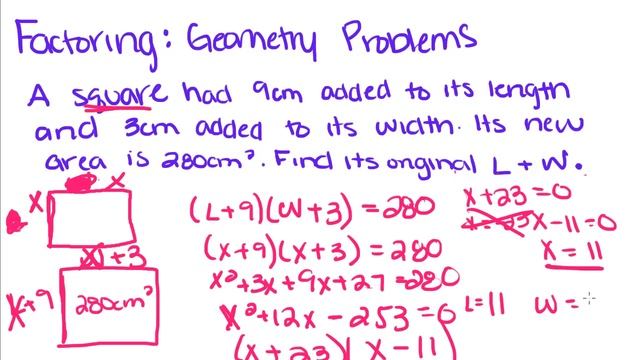 Factoring: Geometry Problems
A square had 9cm added to its length
and 3cm added to its width. Its new
area is 280cm². Find its original L + W.
x
x
(L+9)(W+3) = 280
x+23=0
x-11=0
(x+9)(x+3) = 280
x = 11
x+3
x²+3x+9x+27=280
x+9
280cm²
x²+12x-253=0
L=11
W=
(x+23)(x-11)